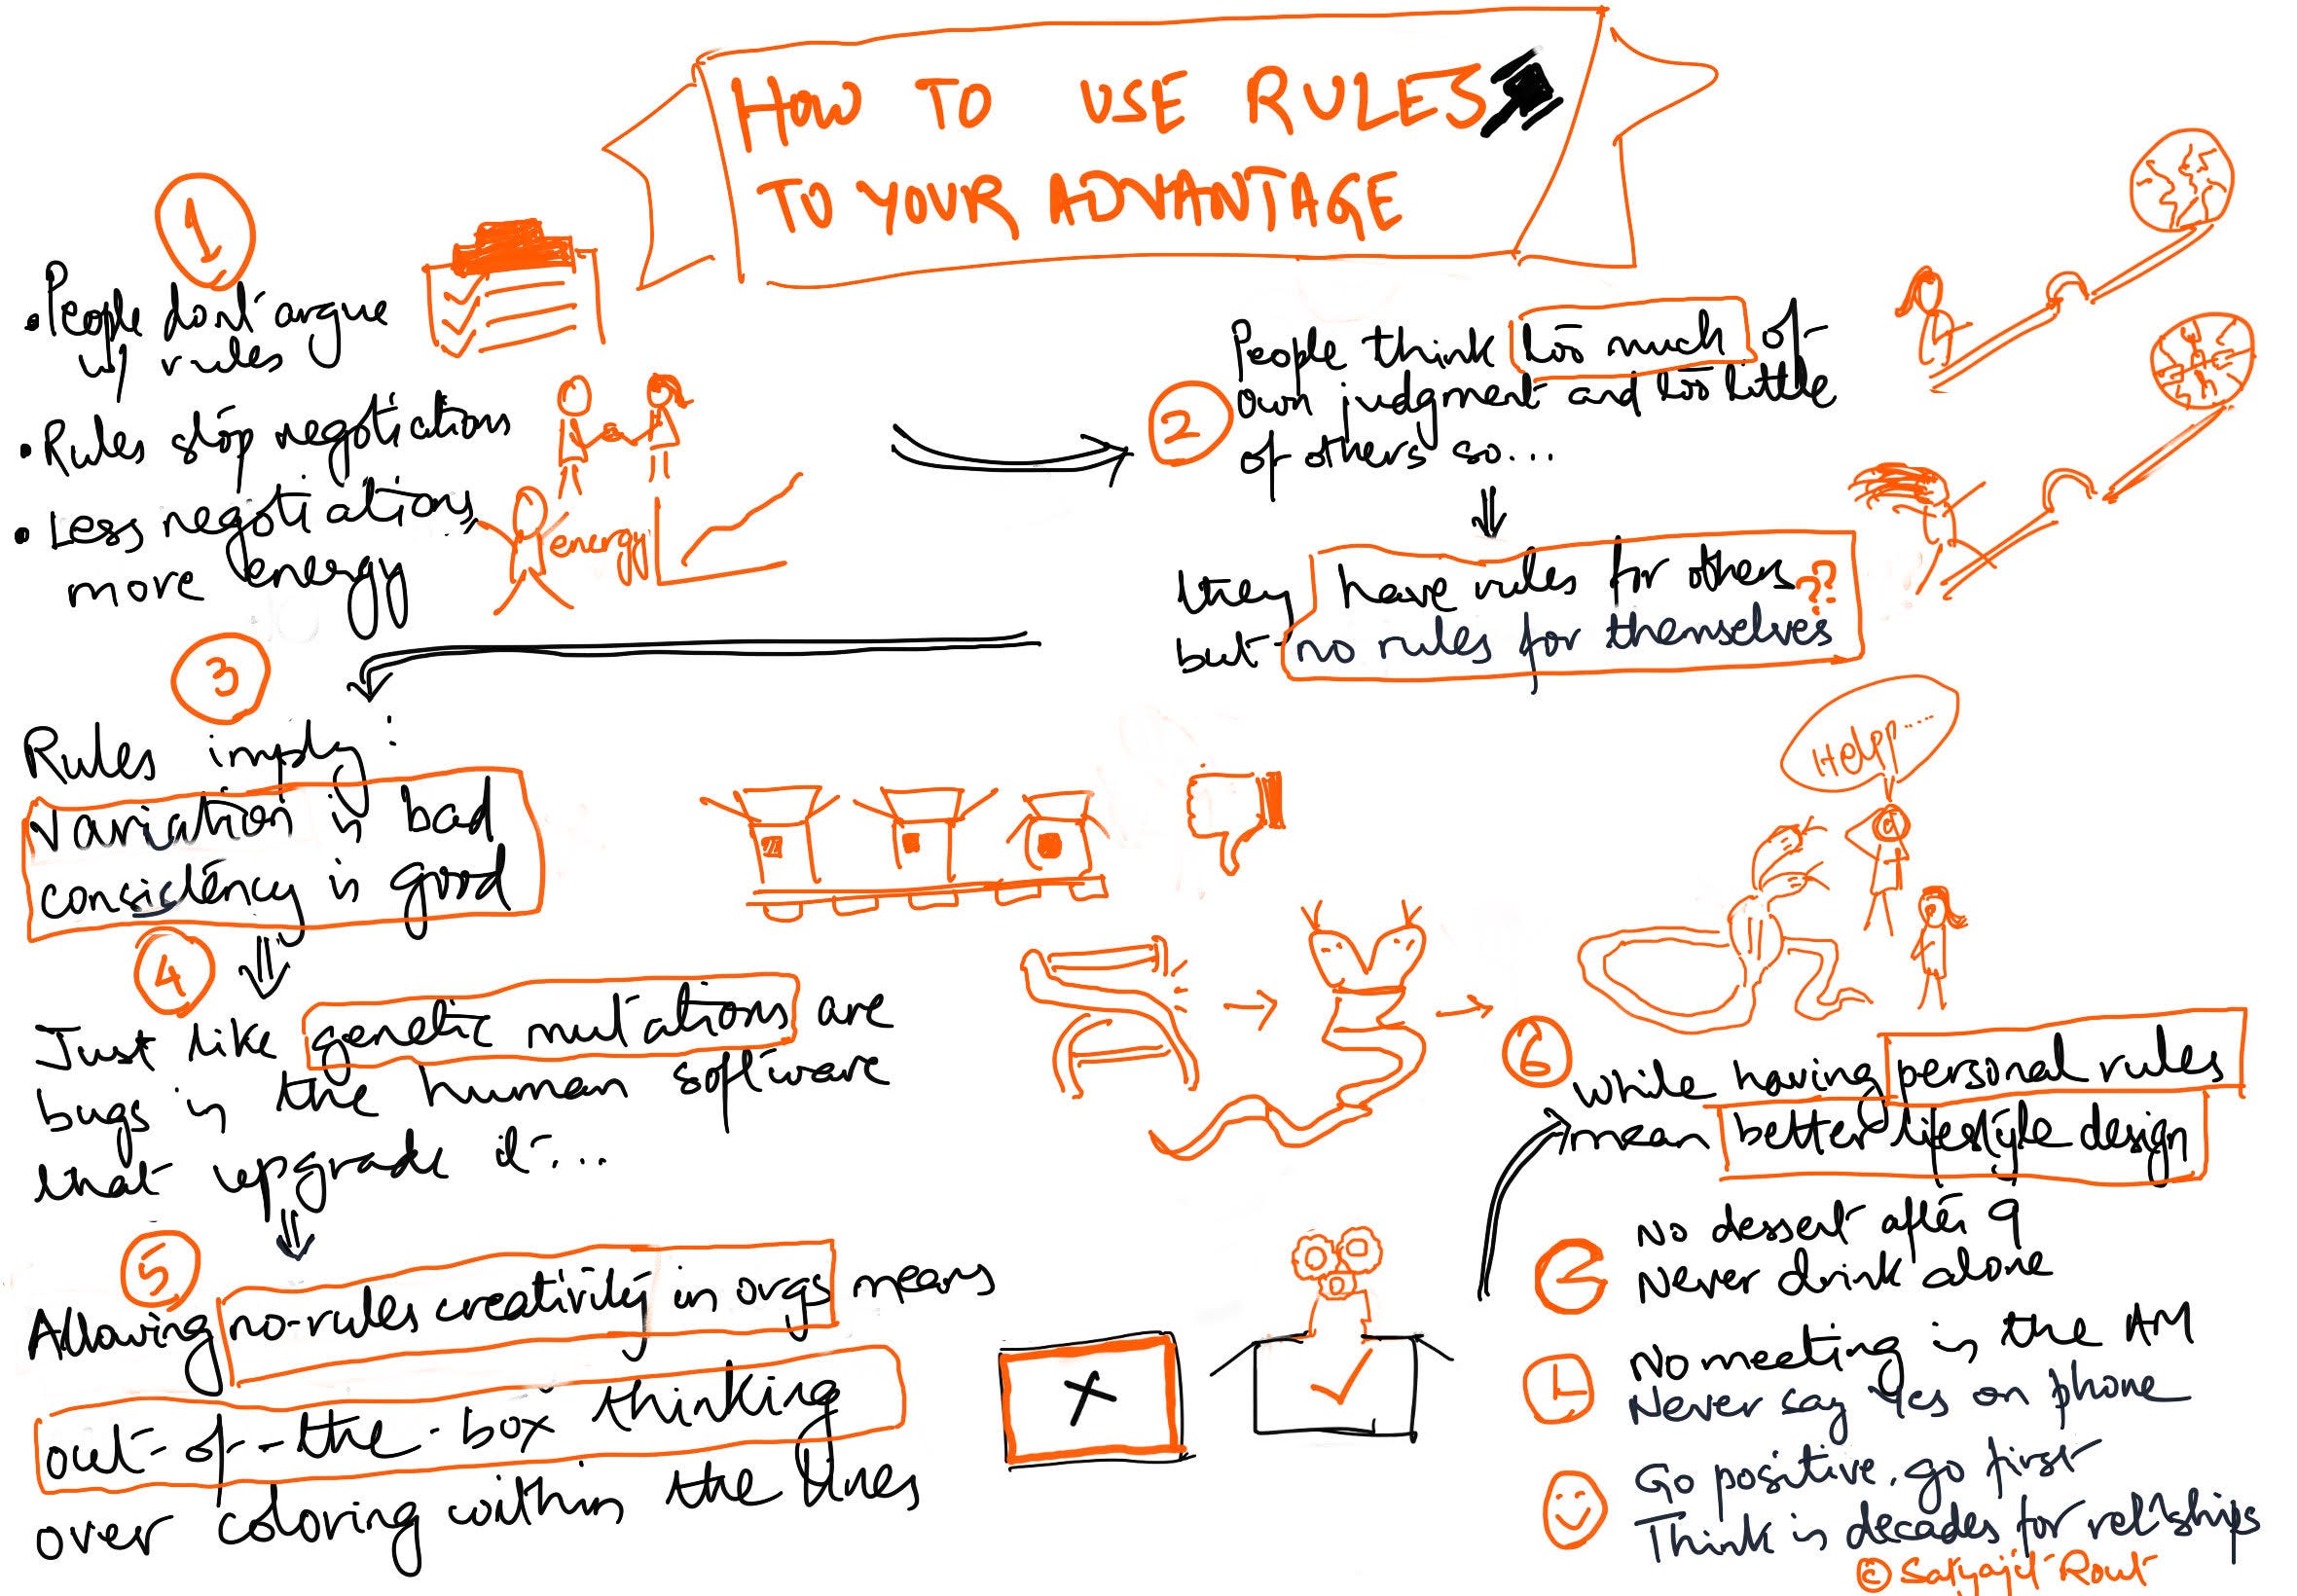 HOW TO USE RULES
TO YOUR ADVANTAGE
1
• People don't argue
w/ rules
• Rules stop negotiations
• Less negotiations,
more energy
energy
2
People think too much of
own judgment and too little
of others so...
they have rules for others??
but no rules for themselves
3
Rules imply:
Variation is bad
consistency is good
4
Just like genetic mutations are
bugs in the human software
that upgrade it...
HELPP....
5
Allowing no-rules creativity in orgs means
out-of-the-box thinking
over coloring within the lines
6
While having personal rules
mean better lifestyle design
No dessert after 9
Never drink alone
No meeting in the AM
Never say Yes on phone
Go positive, go first
Think in decades for rel'ships
© Satyajit Rout